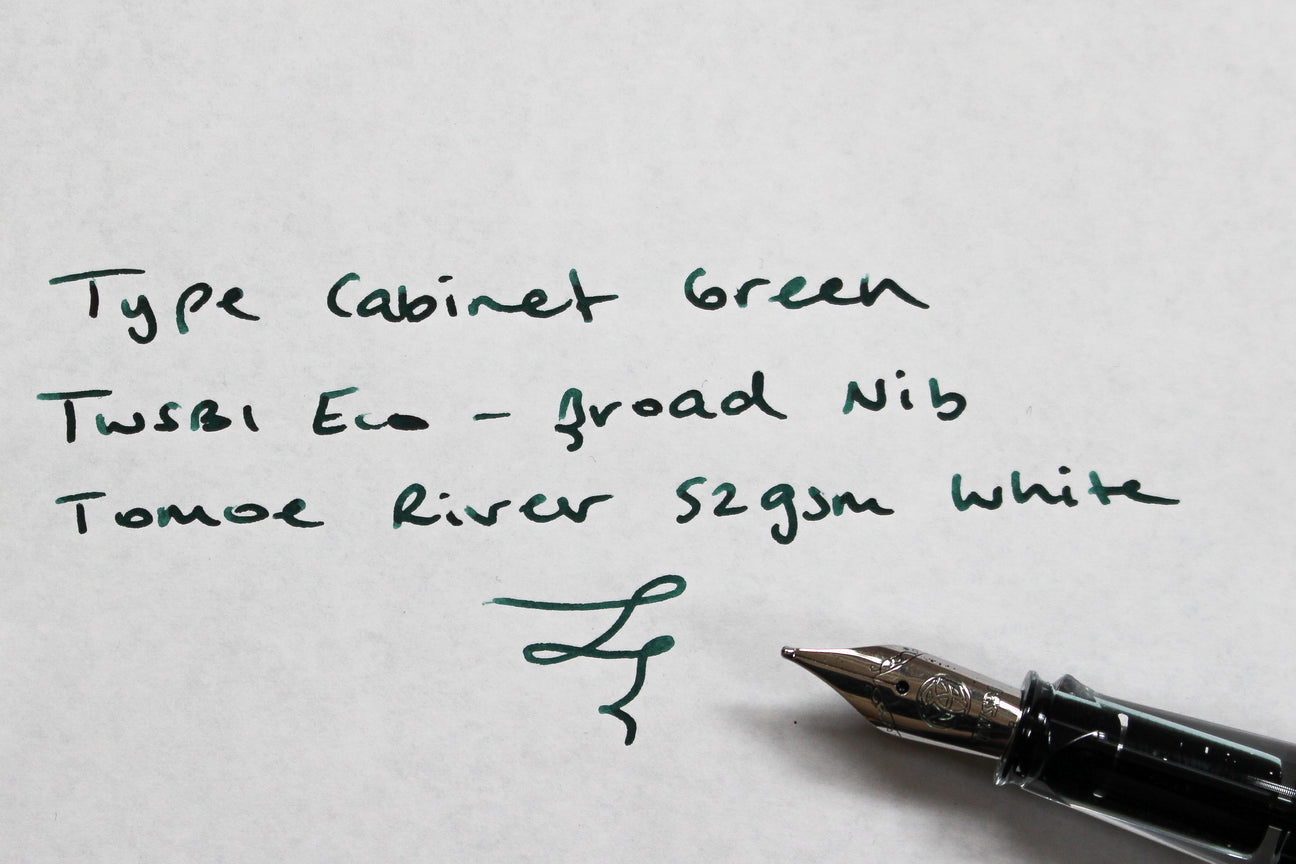 Type Cabinet Green
TWSBI Eco - Broad Nib
Tomoe River 52gsm White